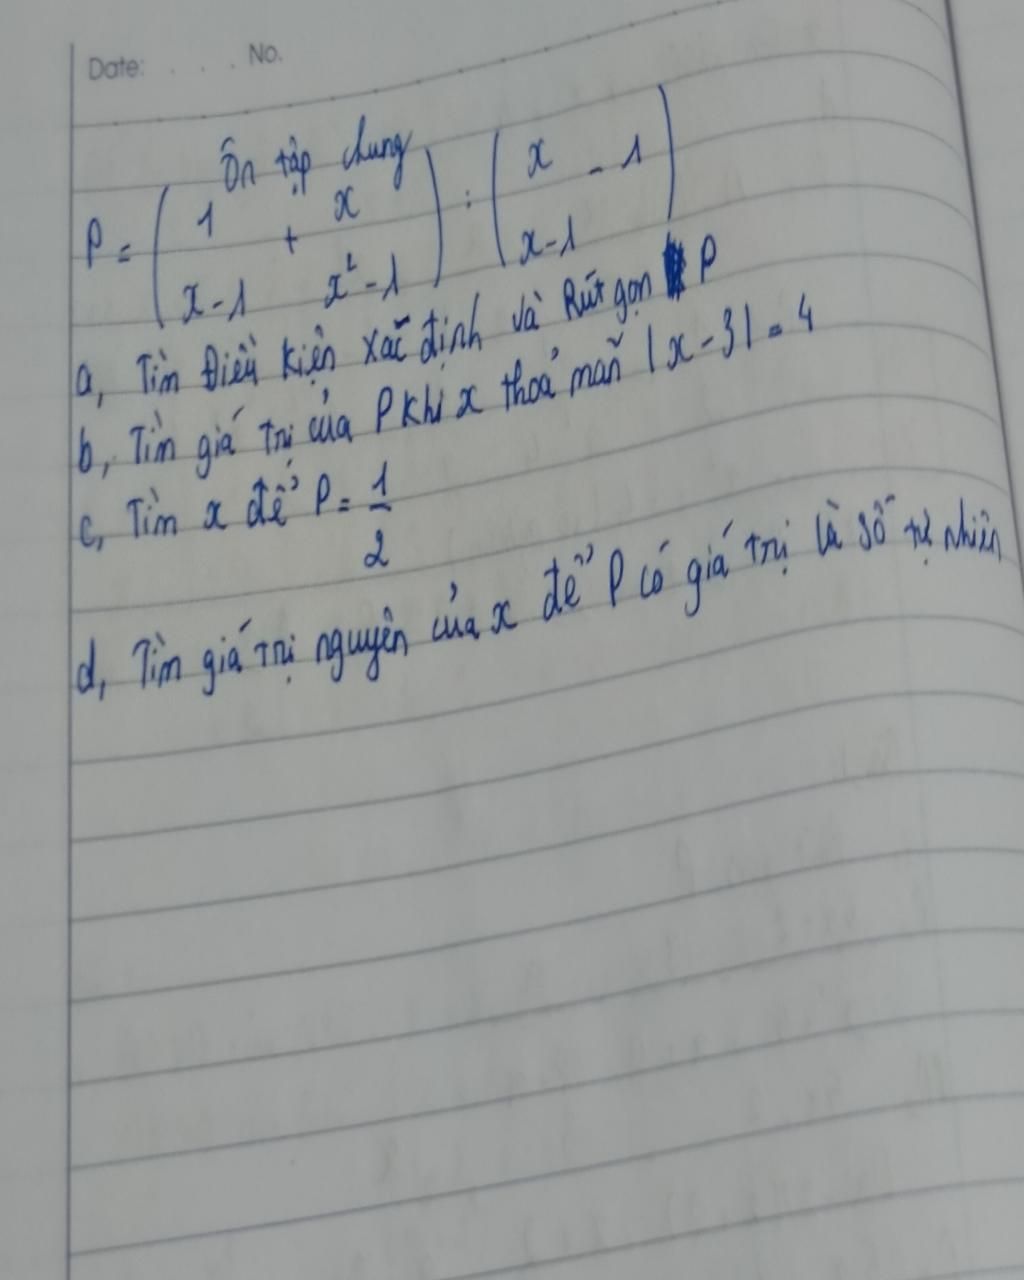 Date: . . . . No.
Ôn tập chung
P = ( 1/(x-1) + x/(x²-1) ) : ( x/(x-1) - 1 )
a, Tìm Điều kiện xác định và Rút gọn P
b, Tìm giá trị của P khi x thoả mãn |x - 3| = 4
c, Tìm x để P = 1/2
d, Tìm giá trị nguyên của x để P có giá trị là số tự nhiên